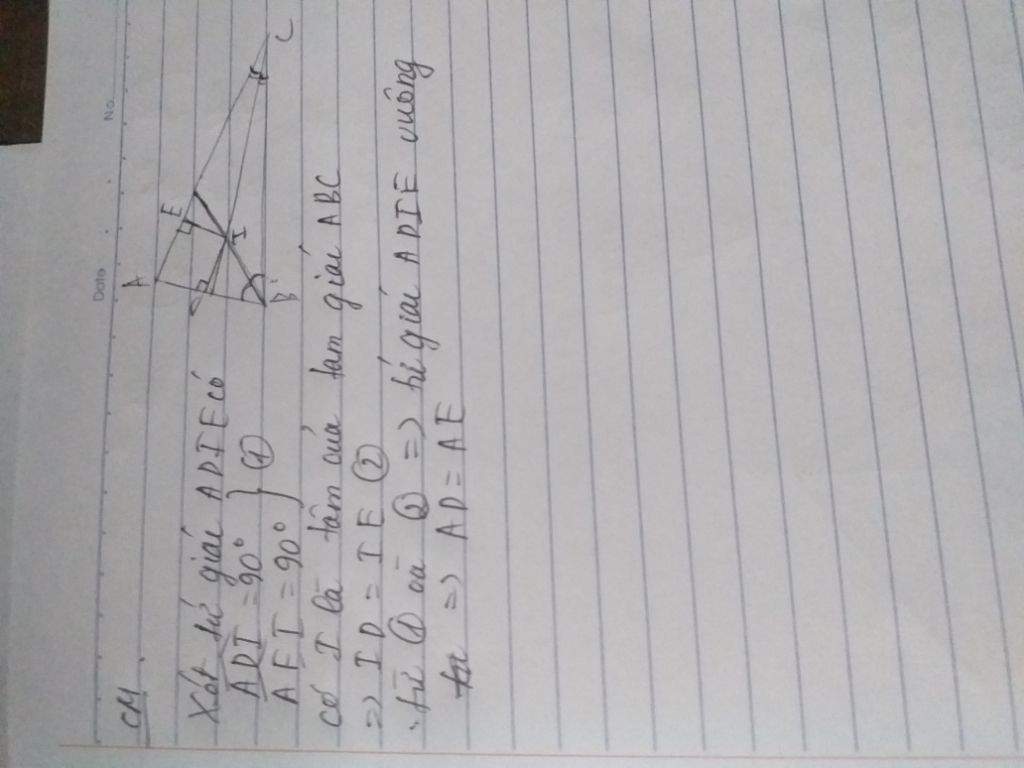 No.
Date
CM
A
E
I
B
C
Xét tứ giác ADIE có
ADI = 90°
AEI = 90° } ①
có I là tâm của tam giác ABC
=> ID = IE ②
từ ① và ② => tứ giác ADIE vuông
=> AD = AE